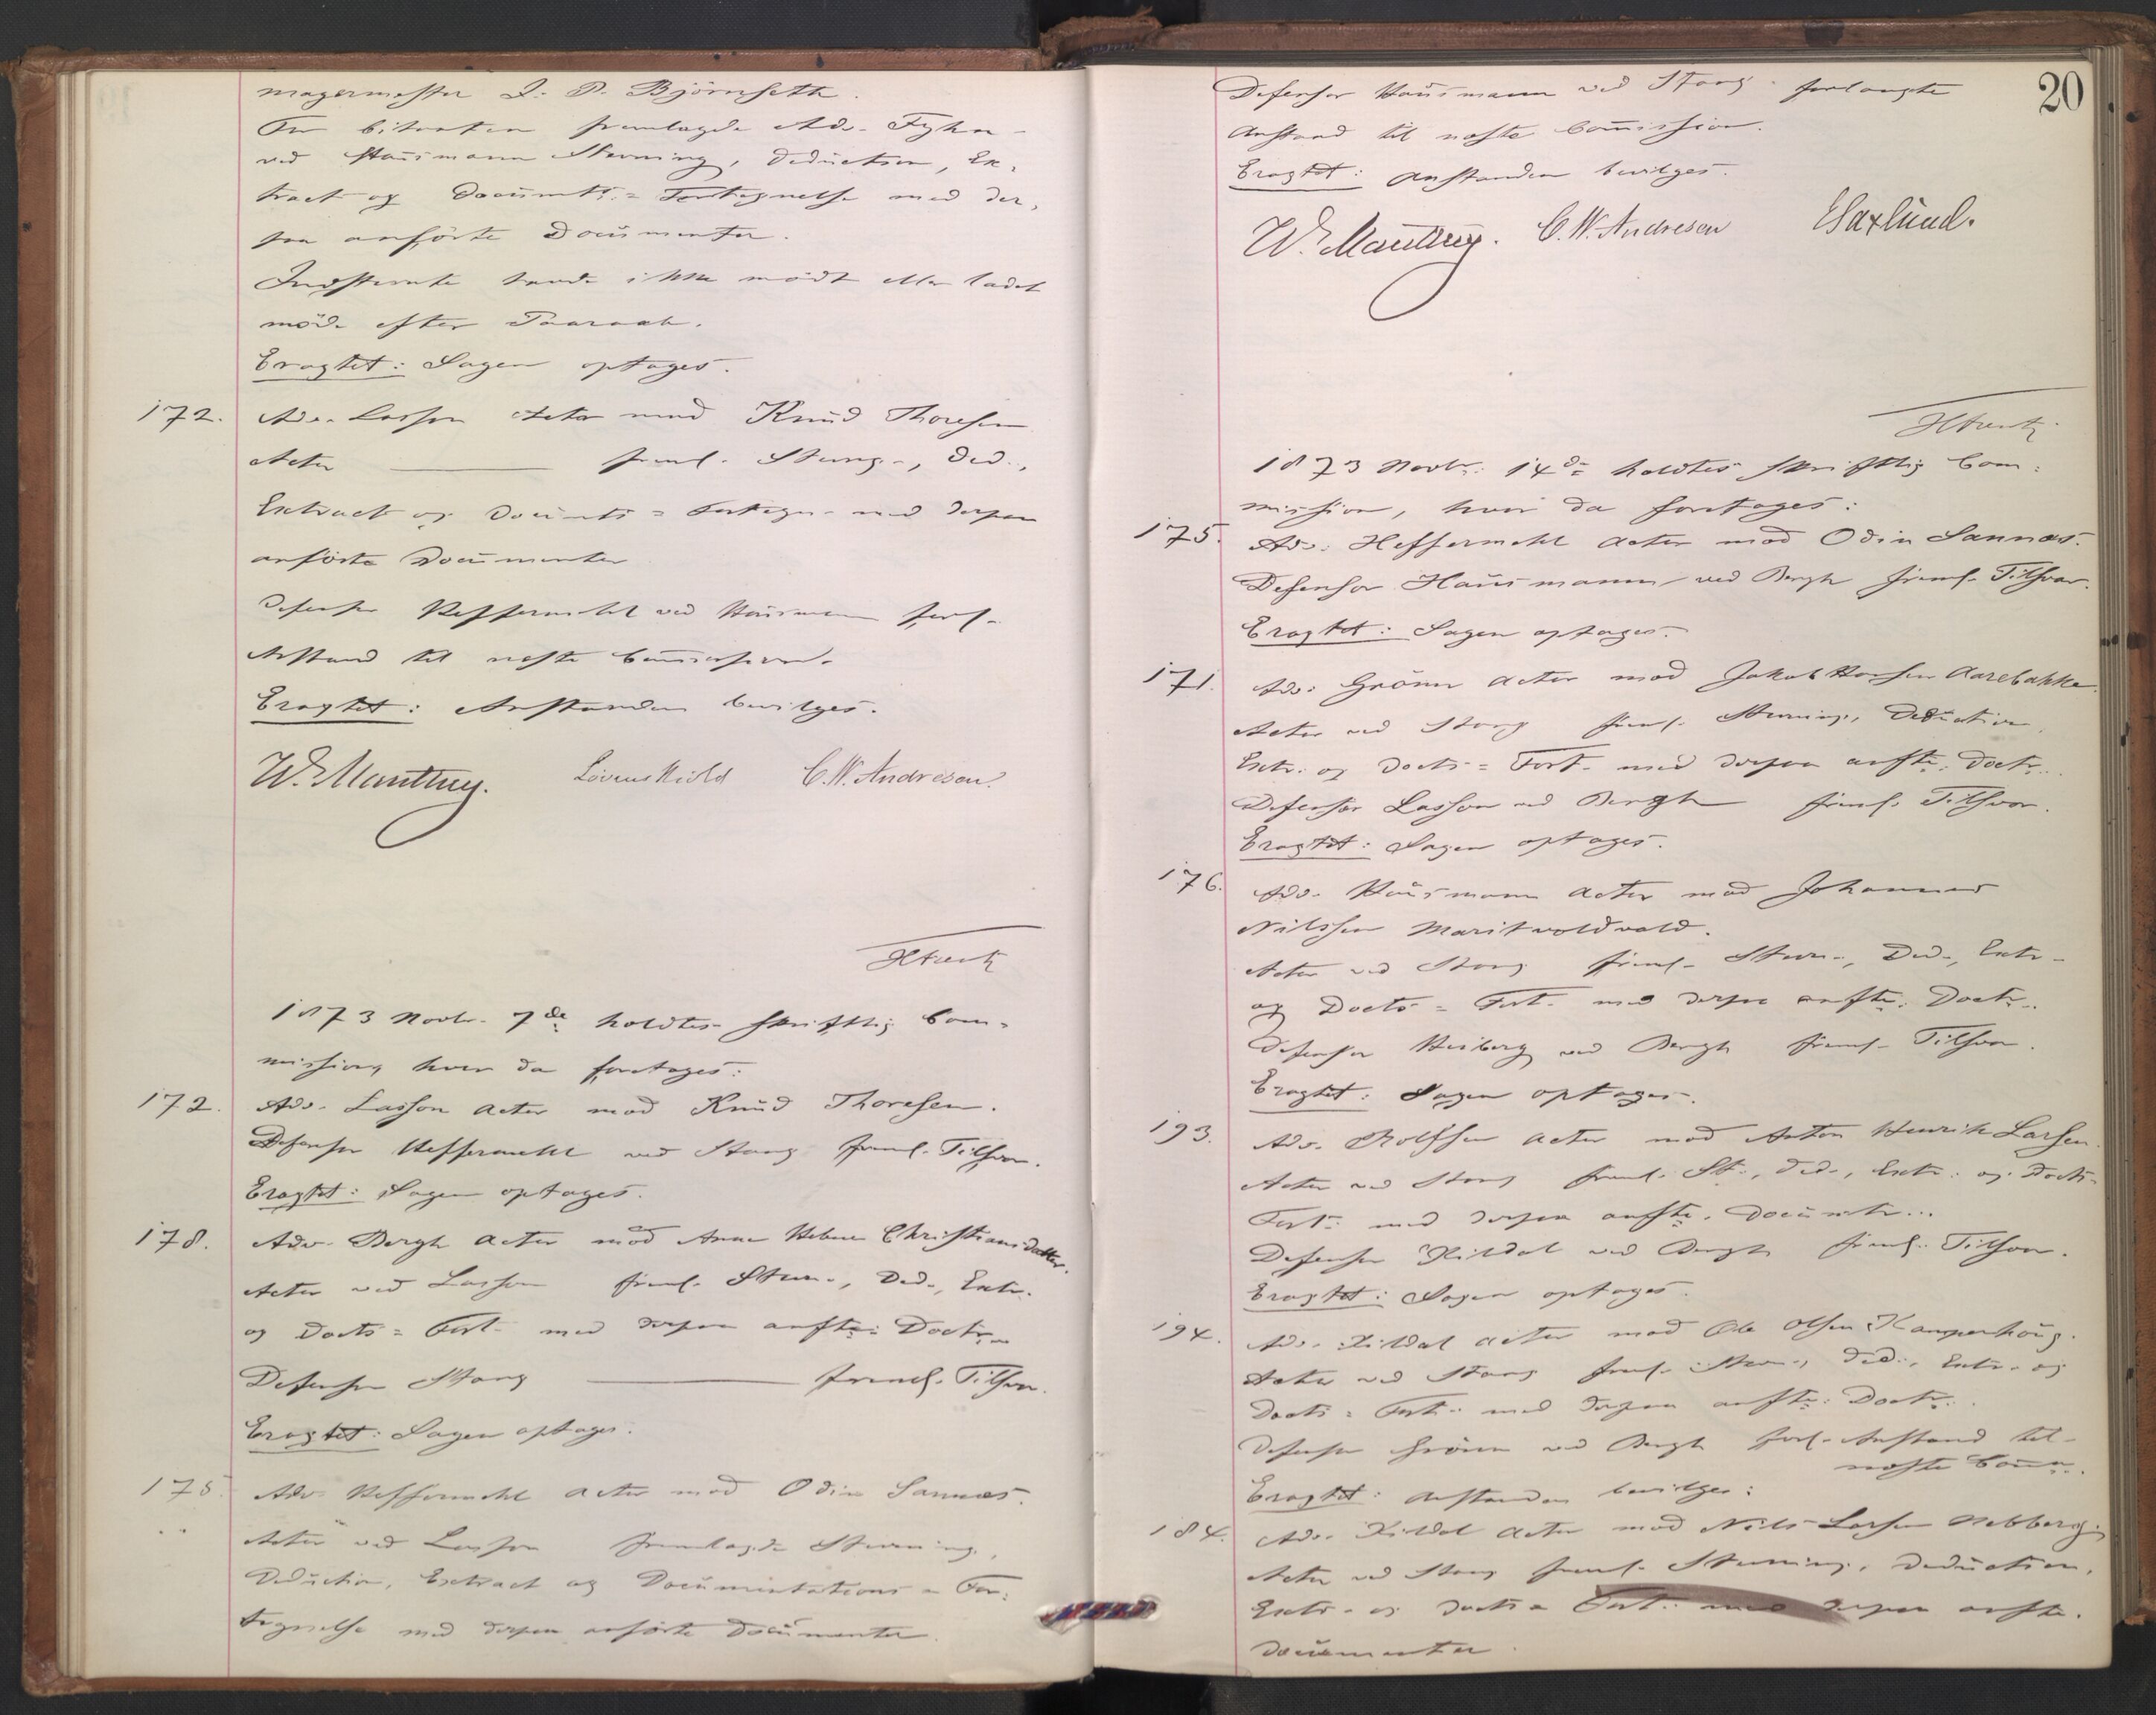 magermester J. P. Björnseth.
For Citanten fremlagde Adv. Fyhn
ved Hausmann Stevning, Deduction, Ex-
tract og Documts.= Fortegnelse med der-
paa anförte Documenter.
Indstevnte havde ikke mödt eller ladet
möde efter Paaraab.
Eragtet: Sagen optages.
172. Adv. Lasson Actor mod Knud Thoresen
Actor ——— freml. Stevng., Ded.,
Extract og Documts = Fortegn. med derpaa
anförte Documenter
Defensor Heffermehl ved Hausmann forl.
Anstand til næste Commission.
Eragtet: Anstanden bevilges.
W. Manthey. Løvenskiold C. W. Andresen.
1873 Novbr. 7de holdtes skriftlig Com-
mission, hvor da foretoges:
172. Adv. Lasson Actor mod Knud Thoresen.
Defensor Heffermehl ved Stang freml. Tilsvar.
Eragtet: Sagen optages.
178. Adv. Bergh Actor mod Anne Helene Christiansdatter.
Actor ved Lasson freml. Stevn., Ded., Extr.
og Docts = Fort. med derpaa anfte: Doctr.
Defensor Stang ——— freml. Tilsvar.
Eragtet: Sagen optages.
175. Adv. Heffermehl Actor mod Odin Sannæs.
Actor ved Lasson fremlagde Stevning,
Deduction, Extract og Documentations = For-
tegnelse med derpaa anförte Documenter.
20
Defensor Hausmann ved Stang forlangte
Anstand til næste Commission.
Eragtet: Anstanden bevilges.
W. Manthey. C. W. Andresen E Saxlund.
1873 Novbr. 14de holdtes skriftlig Com-
mission, hvor da foretoges:
175. Adv. Heffermehl Actor mod Odin Sannæs.
Defensor Hausmann ved Bergh freml. Tilsvar.
Eragtet: Sagen optages.
171. Adv. Grönn Actor mod Jakob Hansen Aarebakke.
Actor ved Stang freml. Stevning, Deduction,
Extr. og Docts = Fort. med derpaa anfte. Doctr.
Defensor Lasson ved Bergh freml. Tilsvar.
Eragtet: Sagen optages.
176. Adv. Hausmann Actor mod Johannes
Nilssen Maritvoldvald.
Actor ved Stang freml. Stevn., Ded., Extr.
og Docts = Fort. med derpaa anfte. Doctr.
Defensor Heiberg ved Bergh freml. Tilsvar.
Eragtet: Sagen optages.
193. Adv. Rolfsen Actor mod Anton Henrik Larsen.
Actor ved Stang freml. St., Ded., Extr. og Docts
Fort. med derpaa anfte. Documtr.
Defensor Kildal ved Bergh freml. Tilsvar.
Eragtet: Sagen optages.
194. Adv. Kildal Actor mod Ole Olsen
Actor ved Stang freml. Stevn., Ded., Extr. og
Docts = Fort. med derpaa anfte: Doctr.
Defensor Grönn ved Bergh forl. Anstand til
næste Comm.
Eragtet: Anstanden bevilges:
184. Adv. Kildal Actor mod Nils Larsen
Actor ved Stang freml. Stevning, Deduction,
Extr. og Docts = Fort. med derpaa anfte.
Documenter.